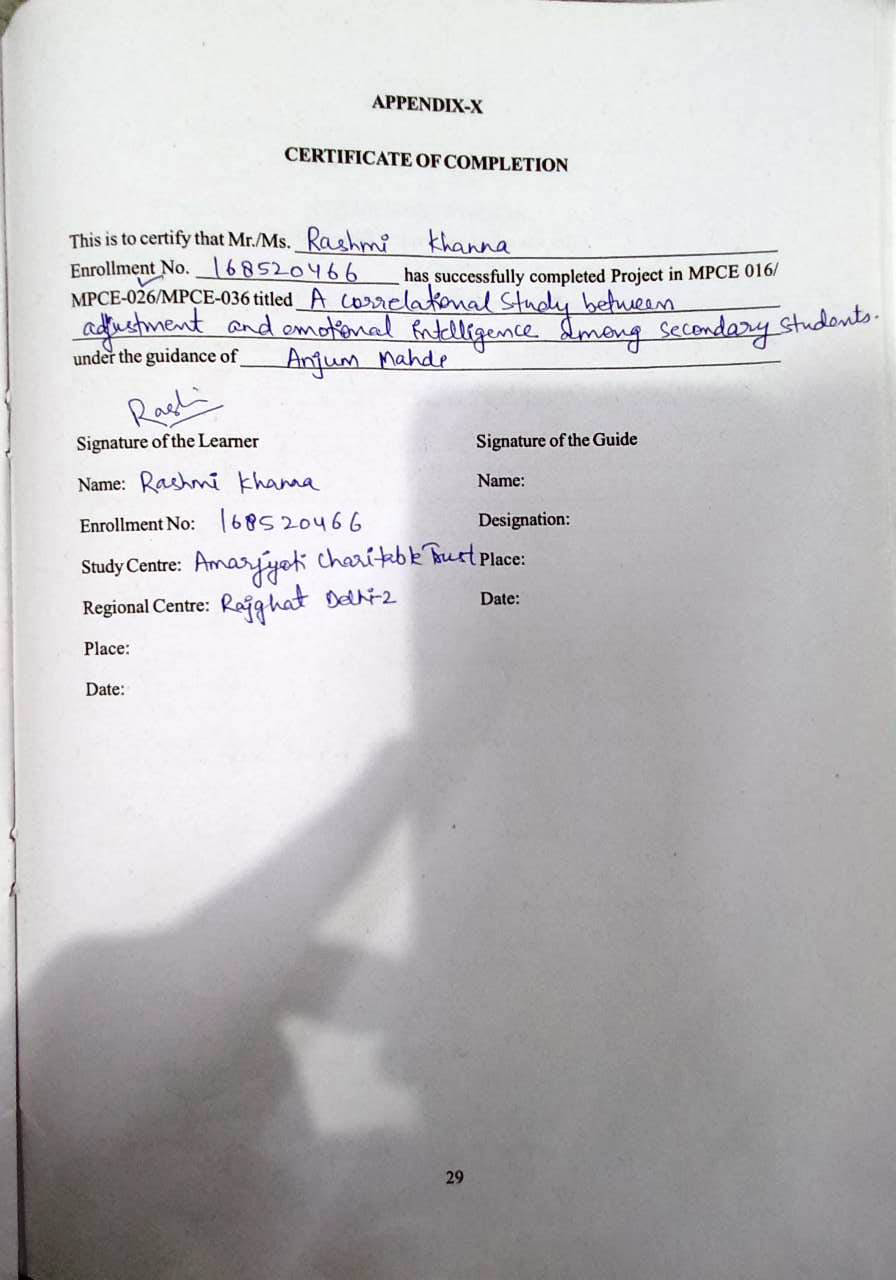 APPENDIX-X
CERTIFICATE OF COMPLETION
This is to certify that Mr./Ms. Rashmi Khanna
Enrollment No. 168520466 has successfully completed Project in MPCE 016/
MPCE-026/MPCE-036 titled A correlational Study between
adjustment and emotional intelligence among secondary students.
under the guidance of Anjum Mahde
Rashi
Signature of the Learner
Name: Rashmi Khanna
Enrollment No: 168520466
Study Centre: Amarjyoti Charitable Trust
Regional Centre: Rajghat Delhi-2
Place:
Date:
Signature of the Guide
Name:
Designation:
Place:
Date:
29